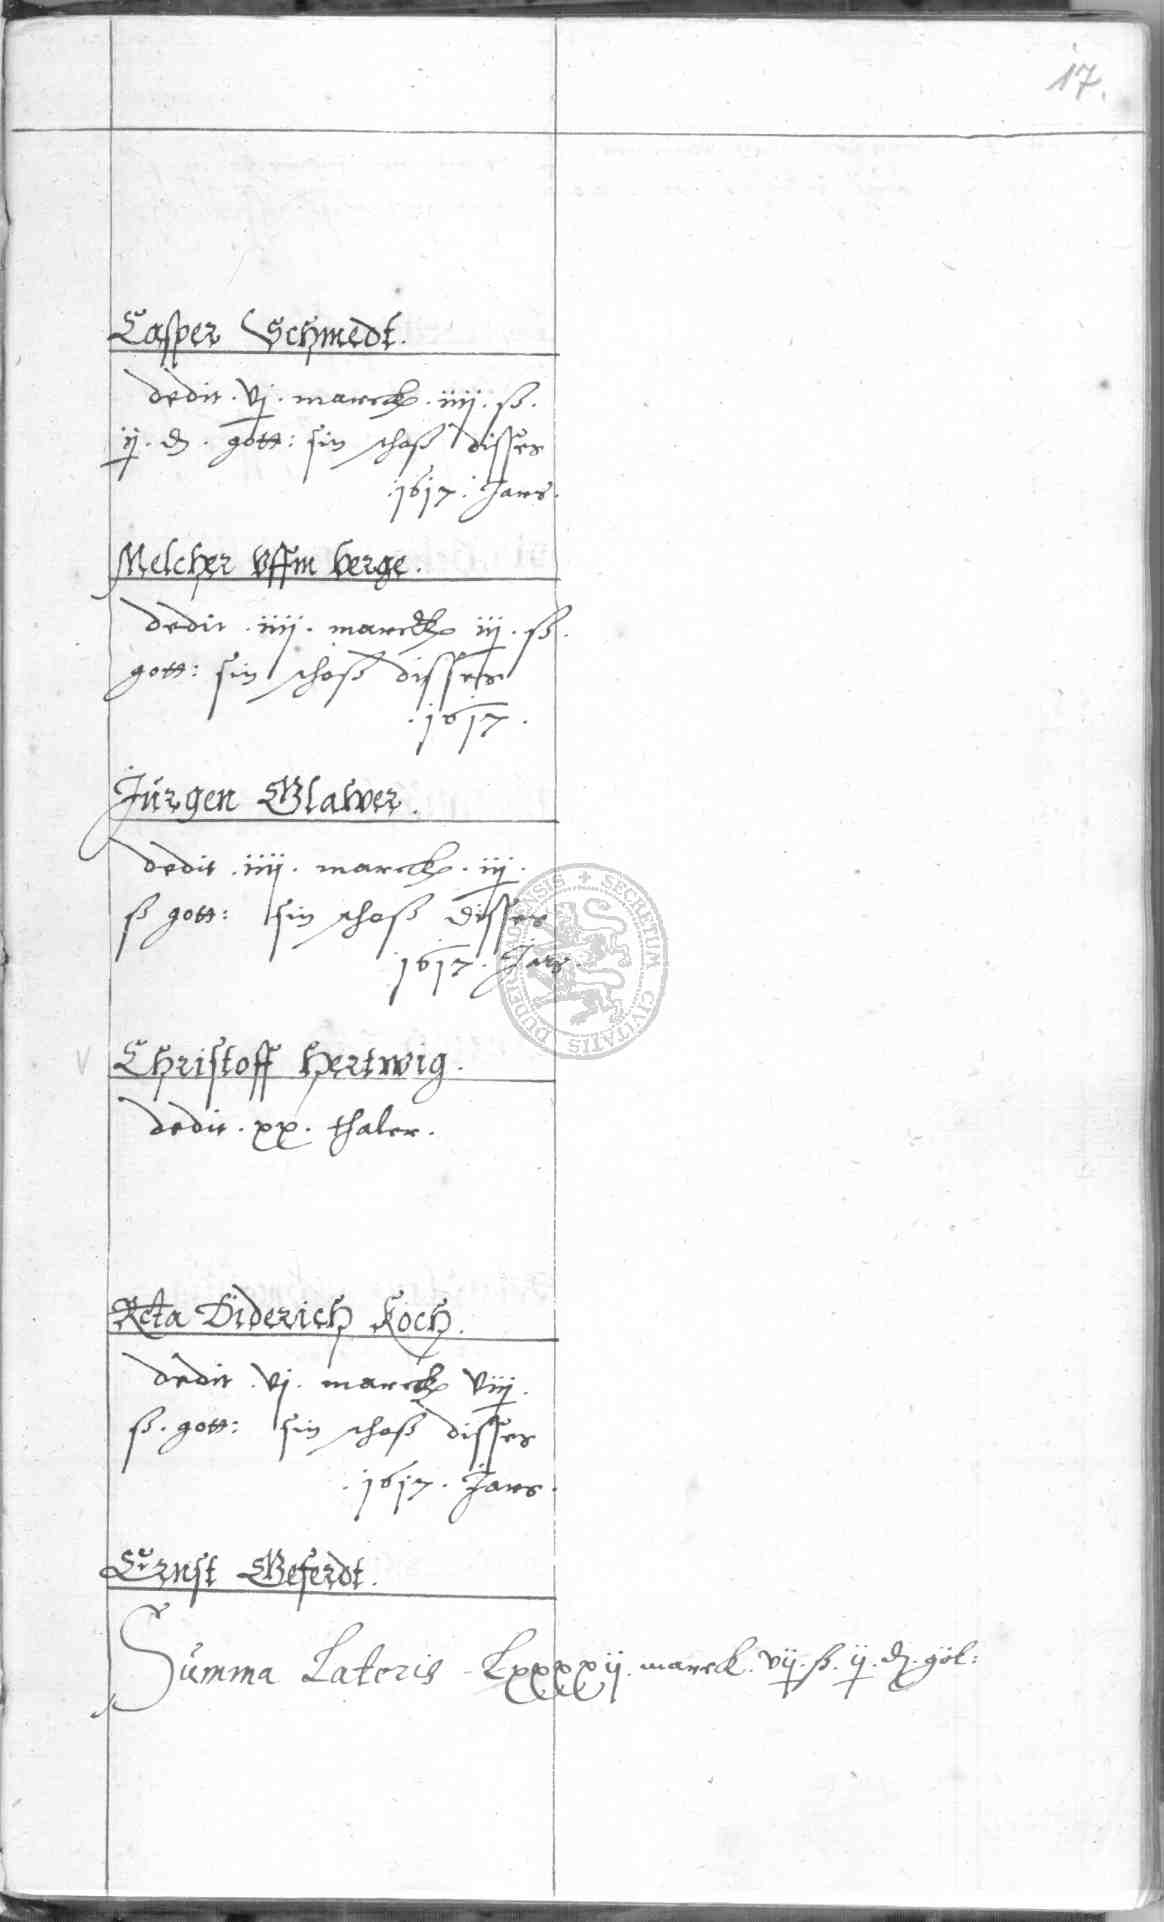 17.
Casper Schmedt.
dedit . vj . marck . iiij . ß .
ij . d . gott: sin schoß disses
. 1617 . Jars .
Melcher uffm berge .
dedit . iiij . marck iij . ß .
gott: sin schoß disses
. 1617 .
Jürgen Glawer .
dedit . iiij . marck . iij .
ß gott: sin schoß disses
1617 . Jars .
V Christoff Hertwig .
dedit . xx . thaler .
Rcta Diderich Koch .
dedit . vj . marck viij .
ß . gott: sin schoß disses
. 1617 . Jars .
Ernst Geferdt .
Summa Lateris - Lxxxxij . marck . vij . ß . ij . d . göt:
SECRETUM CIVITATIS DUDERSTADENSIS